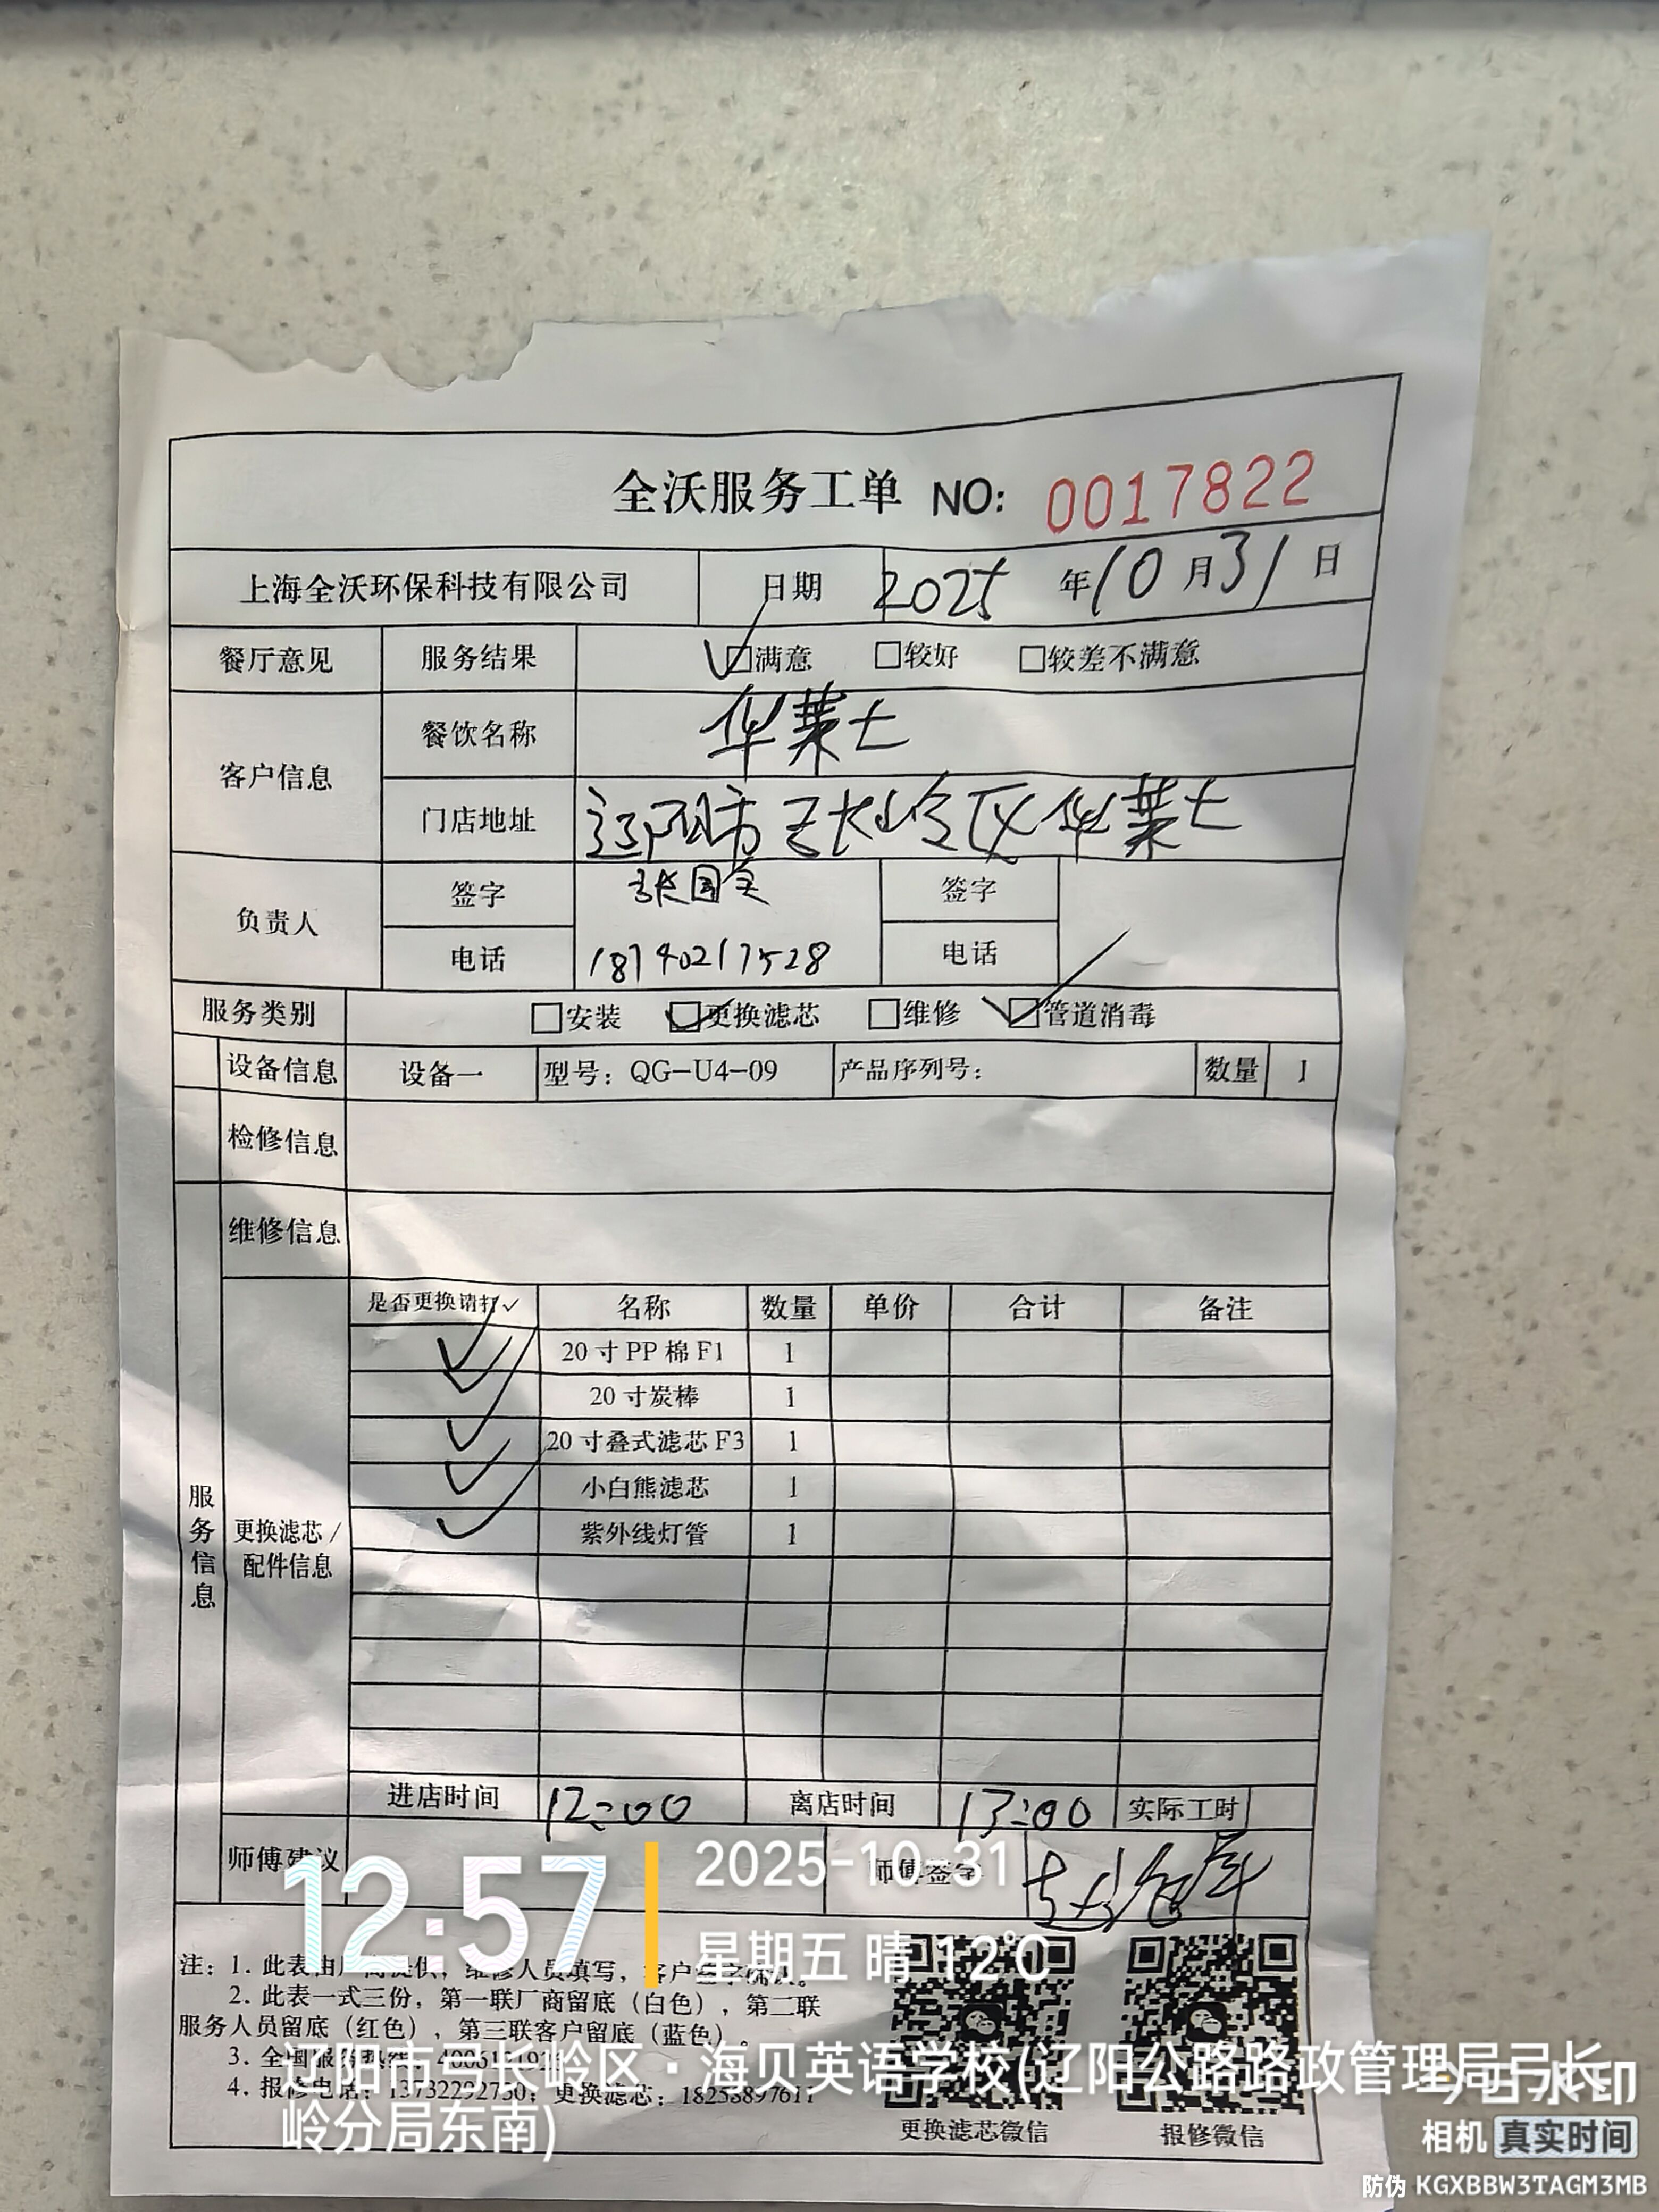 全沃服务工单 NO: 0017822
上海全沃环保科技有限公司 日期 2025 年 10 月 31 日
餐厅意见 服务结果 ☑满意 □较好 □较差不满意
客户信息 餐饮名称 华莱士
门店地址 辽阳市弓长岭区华莱士
负责人 签字 张国 签字
电话 18740217528 电话
服务类别 □安装 ☑更换滤芯 □维修 ☑管道消毒
设备信息 设备一 型号：QG-U4-09 产品序列号： 数量 1
检修信息
维修信息
服务信息
更换滤芯/配件信息
是否更换请打✓ 名称 数量 单价 合计 备注
✓ 20寸PP棉F1 1
✓ 20寸炭棒 1
✓ 20寸叠式滤芯F3 1
✓ 小白熊滤芯 1
✓ 紫外线灯管 1
进店时间 12:00 离店时间 13:00 实际工时
师傅建议 师傅签字
12:57
2025-10-31
星期五 晴 12℃
注：1. 此表由厂商提供，维修人员填写，客户签字确认。
2. 此表一式三份，第一联厂商留底（白色），第二联
服务人员留底（红色），第三联客户留底（蓝色）。
3. 全国服务热线
4. 报修电话：13732292750；更换滤芯：18258897611
更换滤芯微信 报修微信
辽阳市弓长岭区·海贝英语学校(辽阳公路路政管理局弓长
岭分局东南)
今日水印
相机 真实时间
防伪 KGXBBW3TAGM3MB